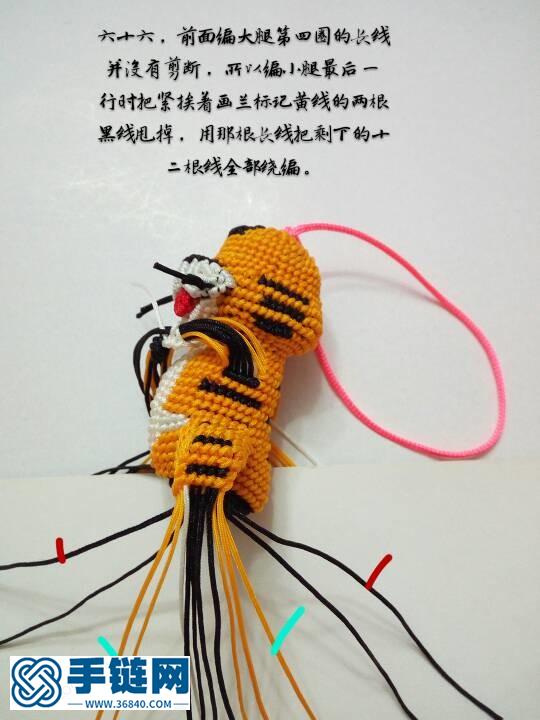 六十六，前面编大腿第四圈的长线
并没有剪断，所以编小腿最后一
行时把紧挨着画兰标记黄线的两根
黑线甩掉，用那根长线把剩下的十
二根线全部绕编。
手链网
WWW.36840.COM